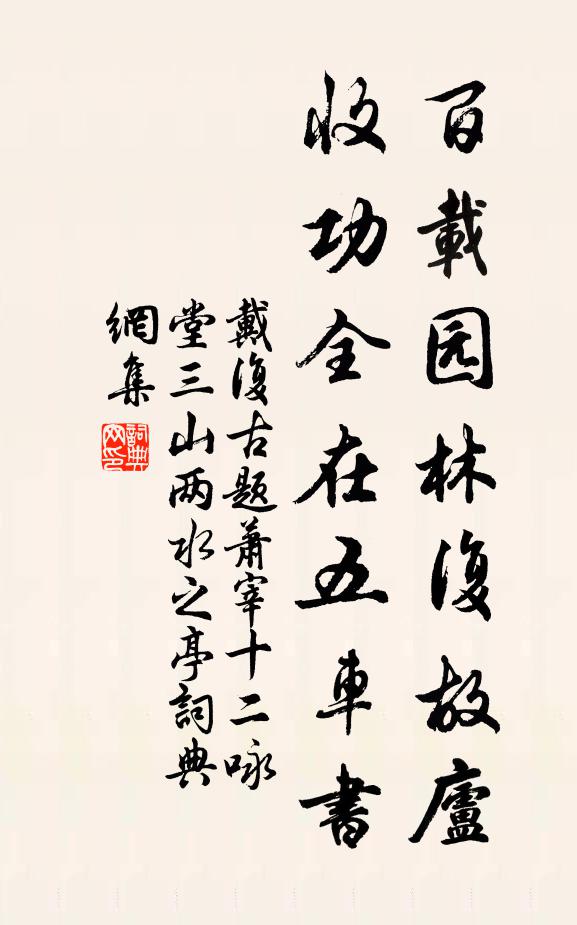 百載园林復故廬
收功全在五車書
戴復古題萧宰十二咏
堂三山两水之亭詞典
網集
詞典
网印